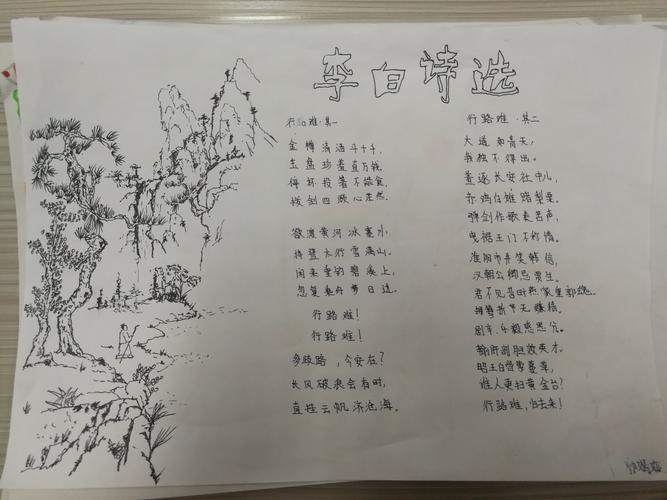 李白诗选
行路难·其一
金樽清酒斗十千,
玉盘珍羞直万钱。
停杯投箸不能食,
拔剑四顾心茫然。
欲渡黄河冰塞川,
将登太行雪满山。
闲来垂钓碧溪上,
忽复乘舟梦日边。
行路难!
行路难!
多歧路,今安在?
长风破浪会有时,
直挂云帆济沧海。
行路难·其二
大道如青天,
我独不得出。
羞逐长安社中儿,
赤鸡白雉赌梨栗。
弹剑作歌奏苦声,
曳裾王门不称情。
淮阴市井笑韩信,
汉朝公卿忌贾生。
君不见昔时燕家重郭隗,
拥篲折节无嫌猜。
剧辛乐毅感恩分,
输肝剖胆效英才。
昭王白骨萦蔓草,
谁人更扫黄金台?
行路难,归去来!